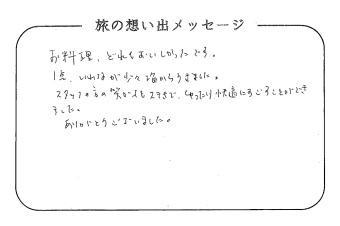 旅の想い出メッセージ
お料理、どれもおいしかったです。
1点、いわなが少々塩からうきました。
スタッフの方の笑顔もステキで、ゆったり快適にすごすことができ
ました。
ありがとうございました。